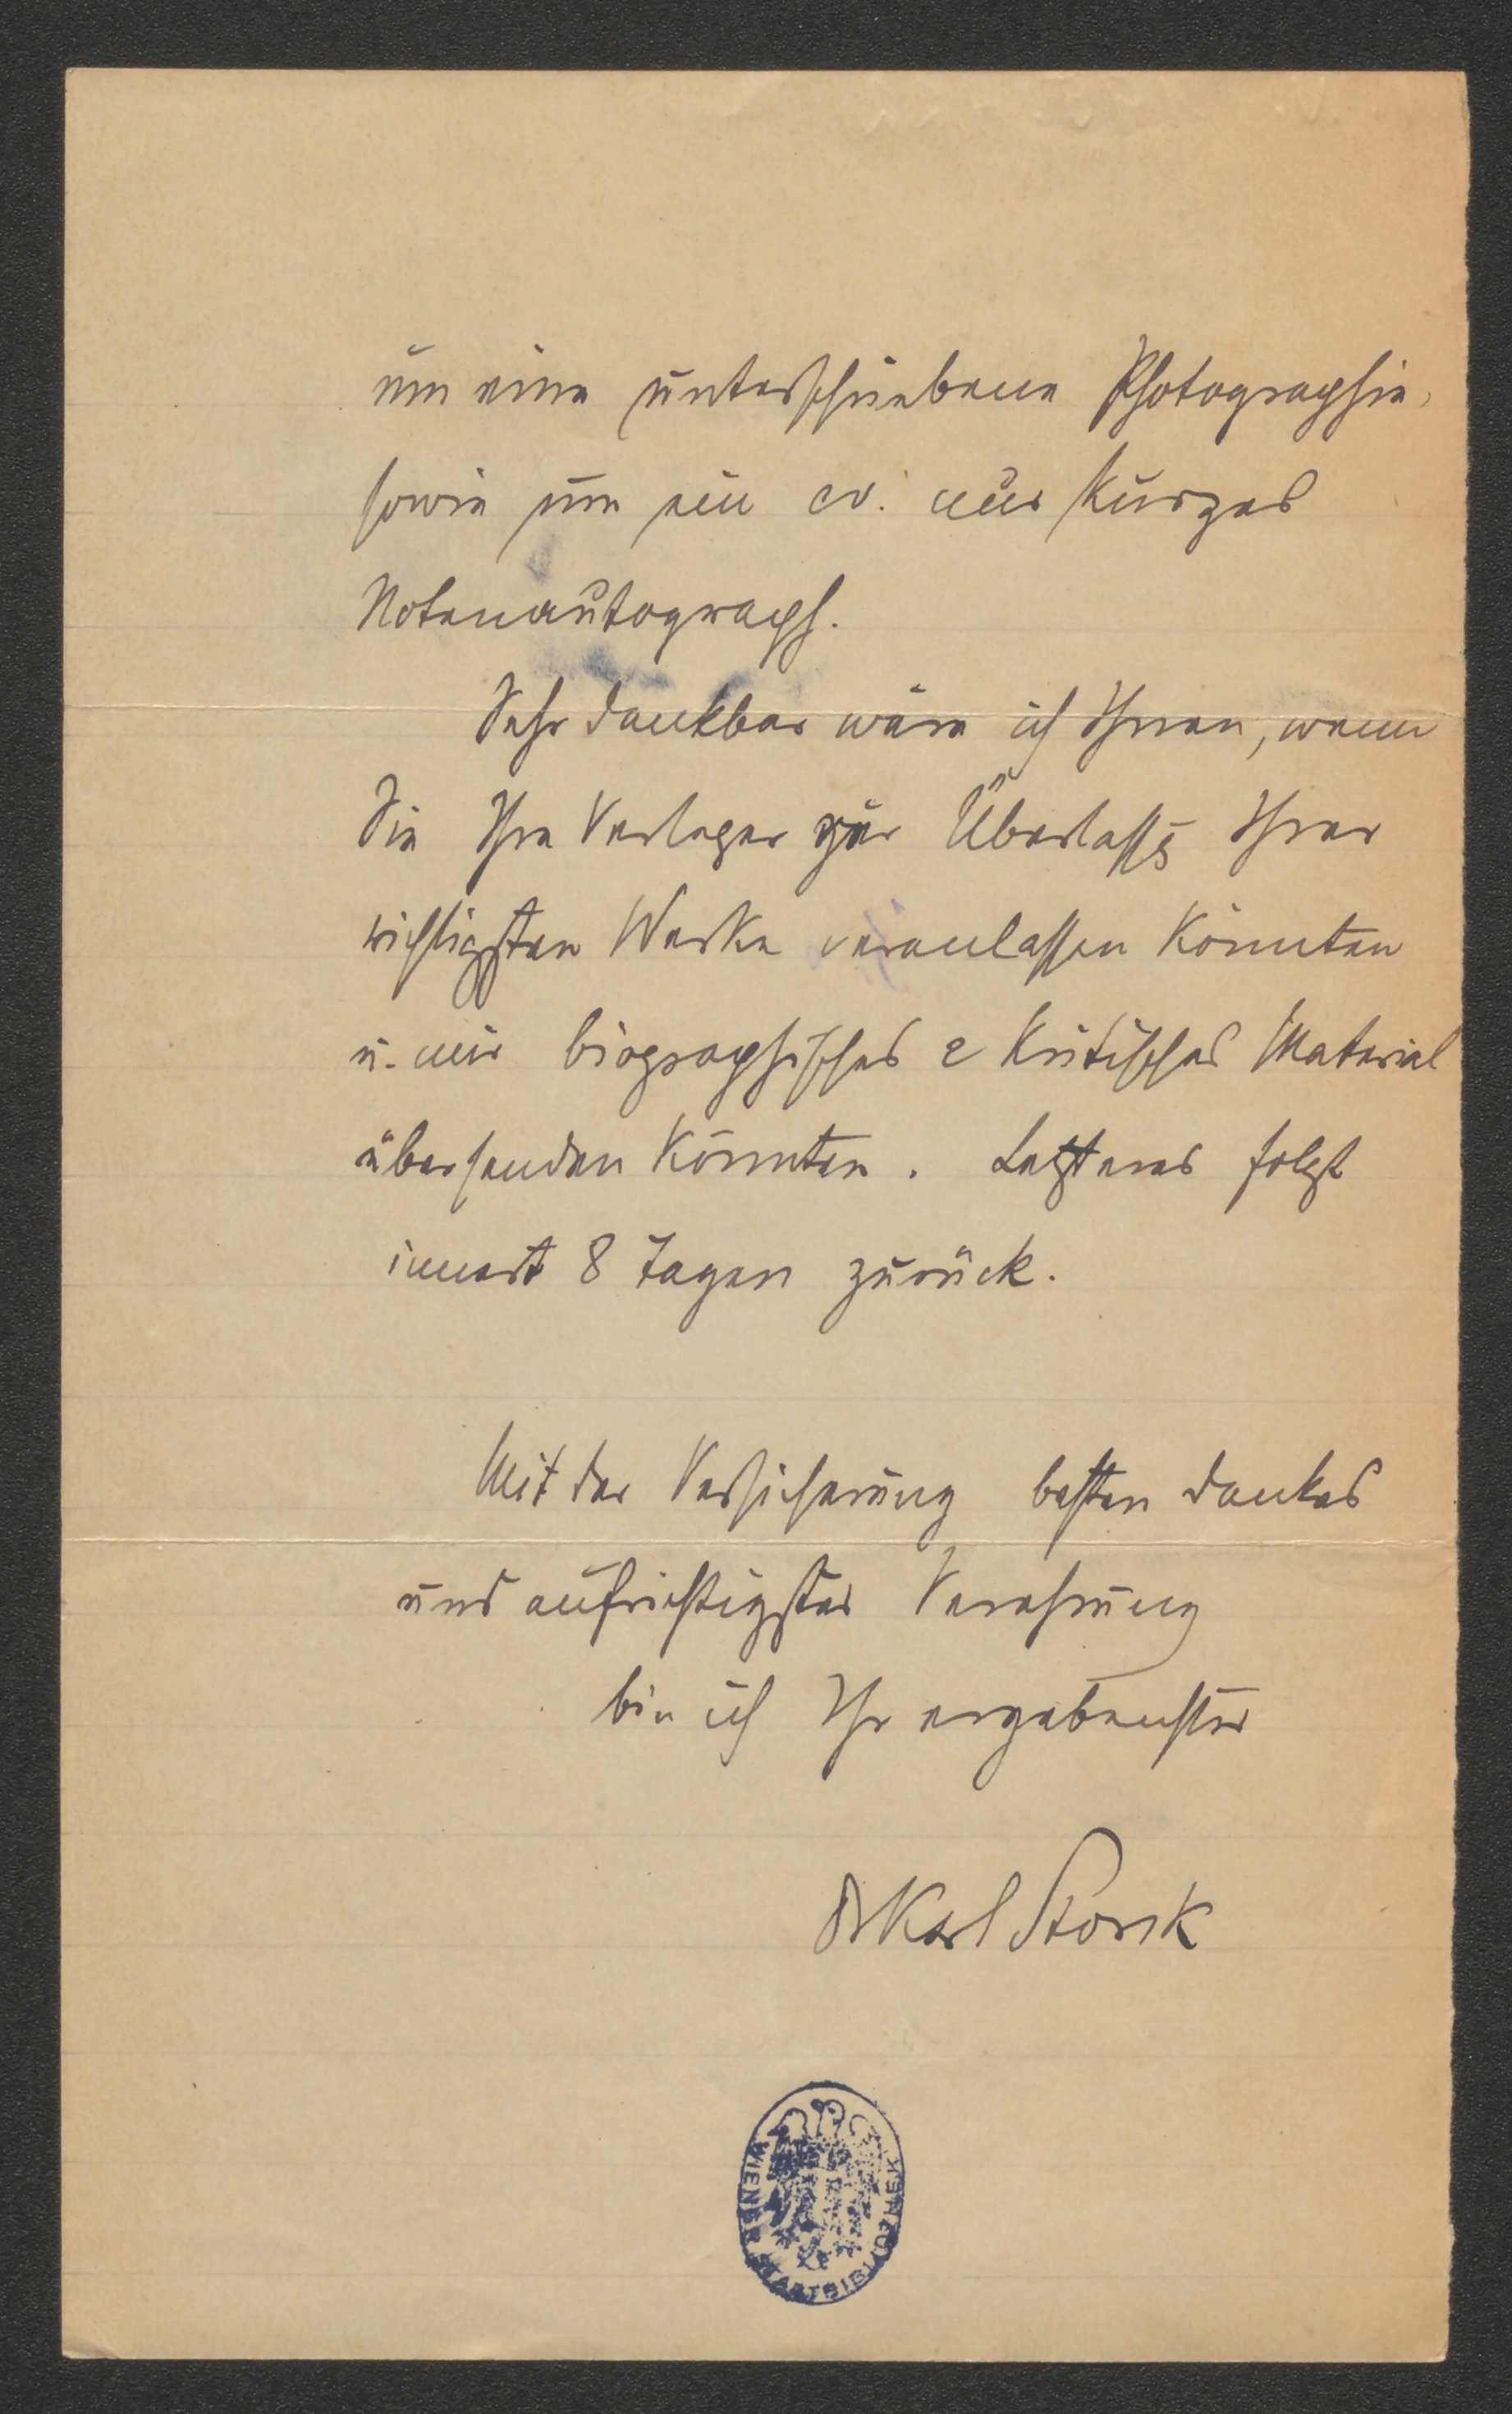 um eine unterschriebene Photographie,
sowie um ein ev. nur kurzes
Notenautograph.
Sehr dankbar wäre ich Ihnen, wenn
Sie Ihre Verleger zur Überlassg Ihrer
wichtigsten Werke veranlassen könnten
u. mir biographisches & kritisches Material
übersenden könnten. Letzteres folgt
innert 8 Tagen zurück.
Mit der Versicherung besten Dankes
und aufrichtigster Verehrung
bin ich Ihr ergebenster
Dr Karl Storck
WIENER STADTBIBLIOTHEK